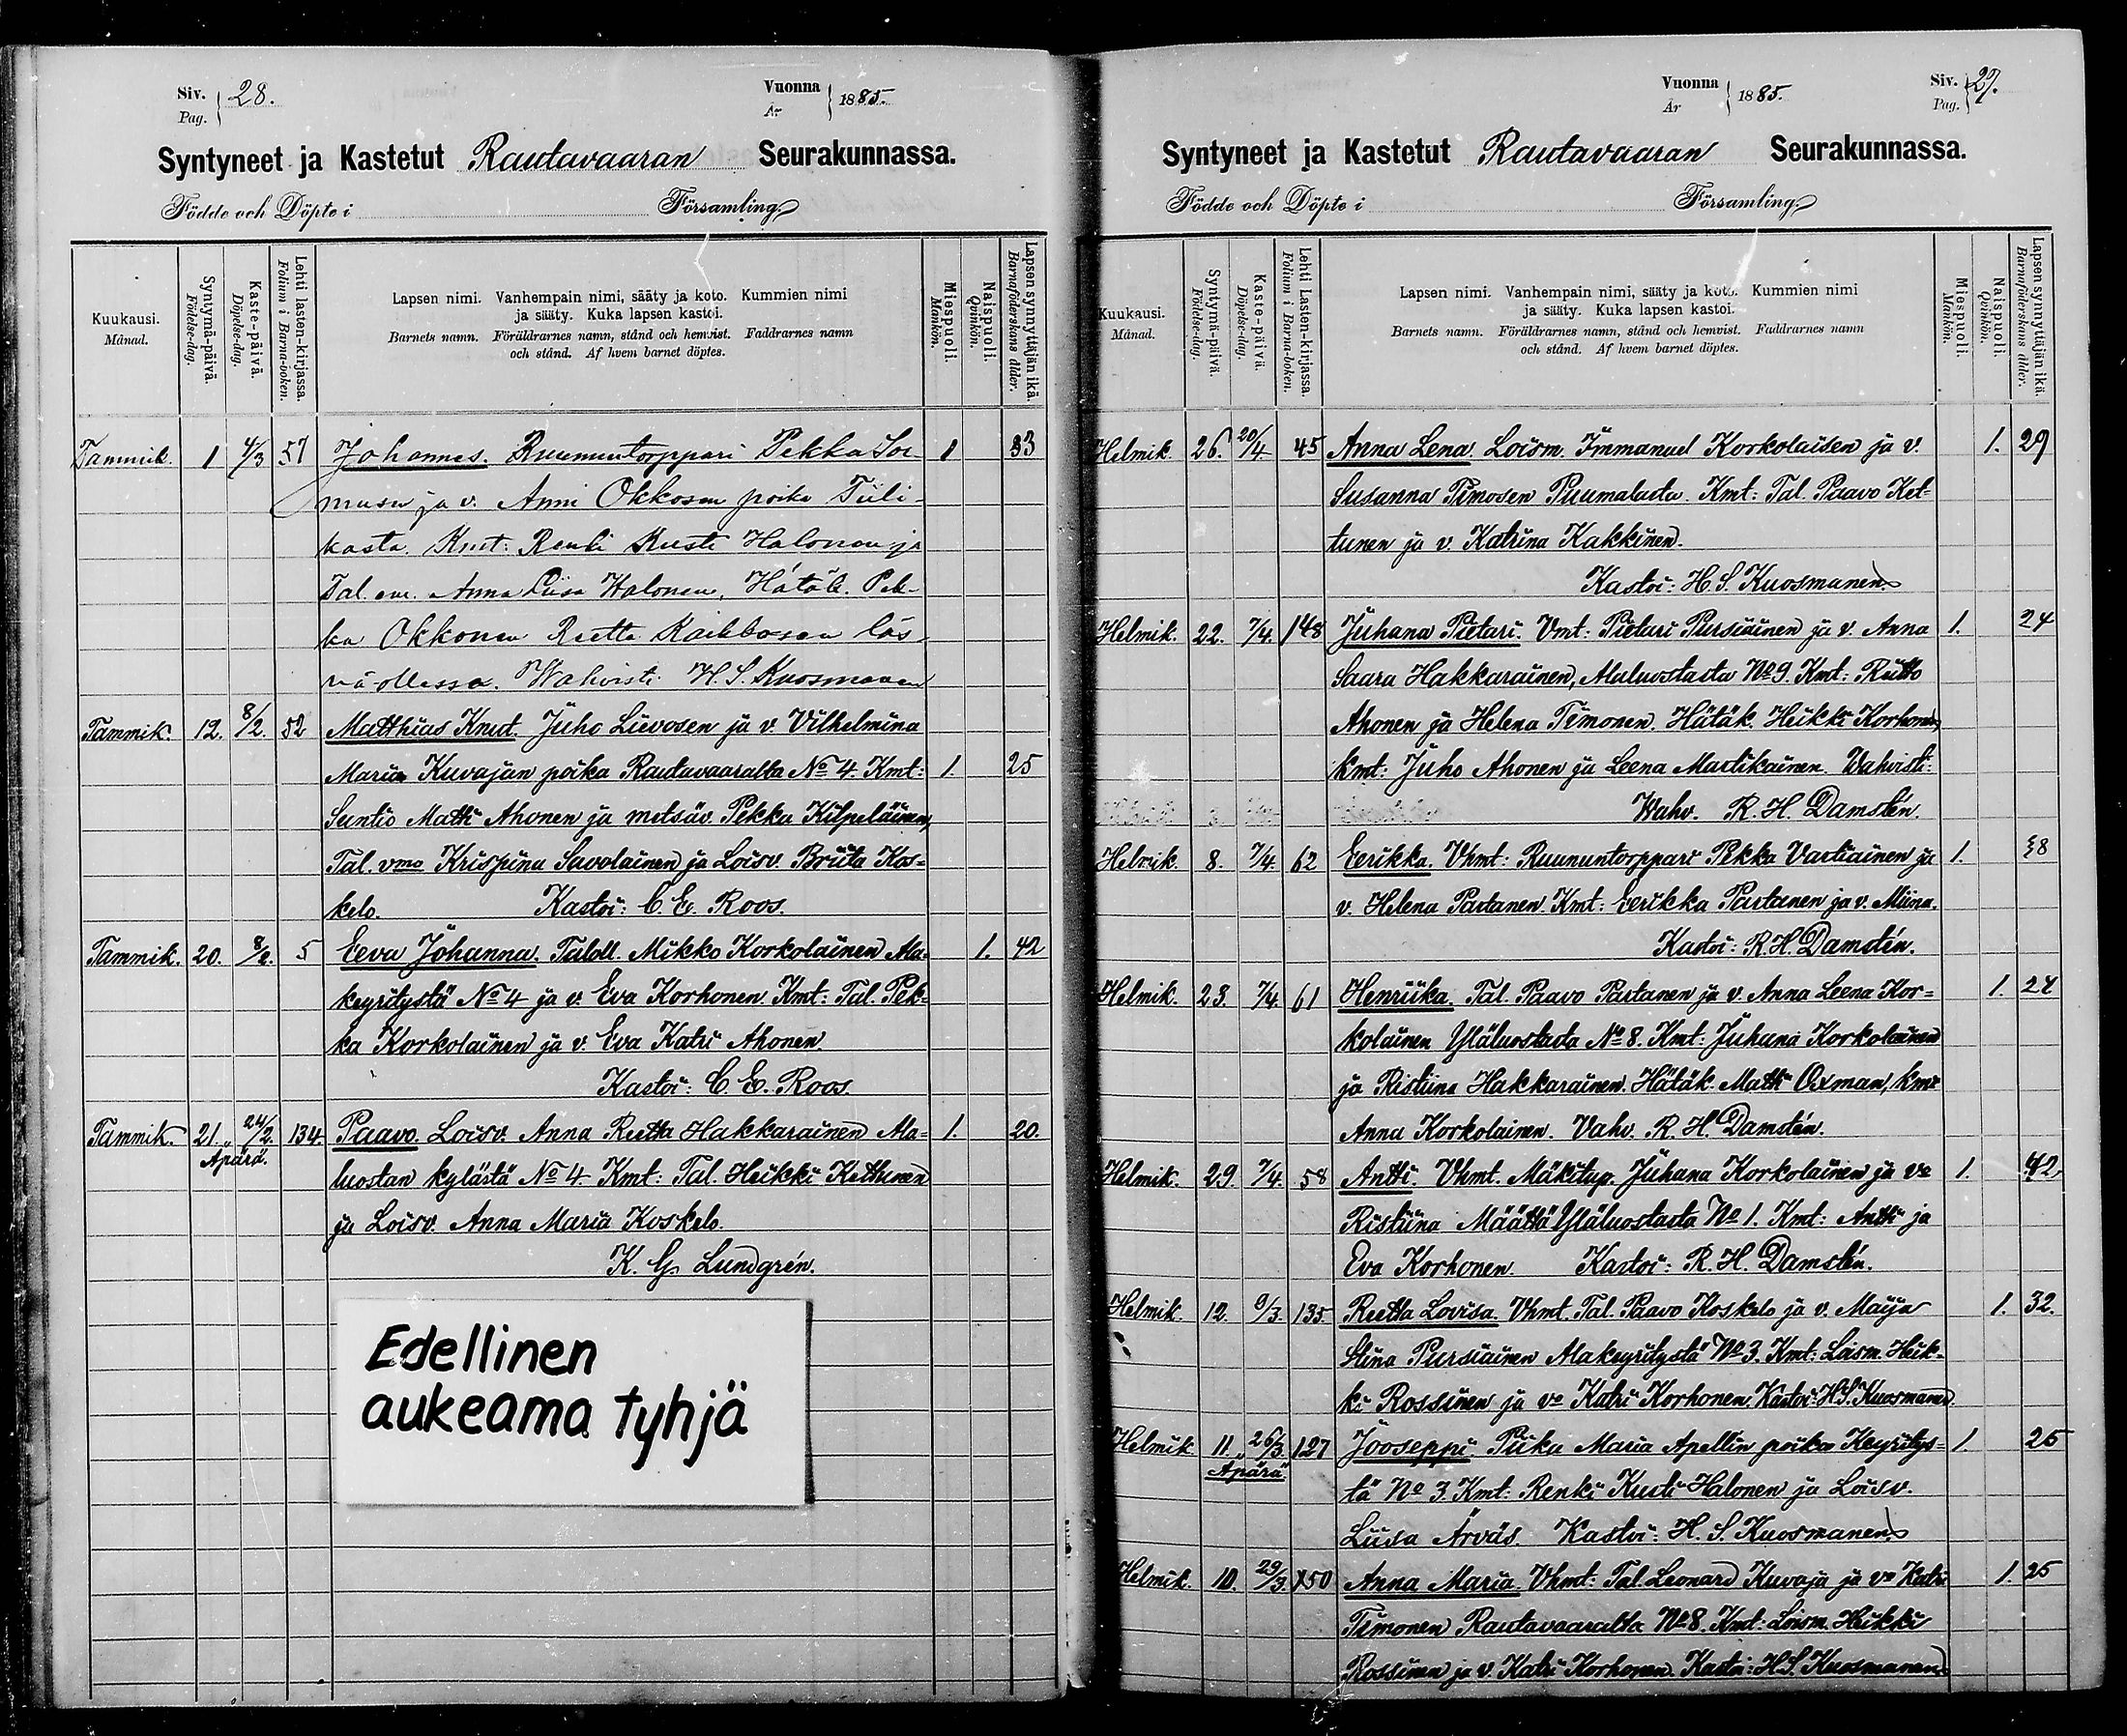 Siv. Pag. 28.
Vuonna År 1885.
Syntyneet ja Kastetut Rautavaaran Seurakunnassa.
Födde och Döpte i Församling.
Kuukausi. Månad.
Syntymä-päivä. Födelse-dag.
Kaste-päivä. Döpelse-dag.
Lehti lasten-kirjassa. Folium i Barna-boken.
Lapsen nimi. Vanhempain nimi, sääty ja koto. Kummien nimi
ja sääty. Kuka lapsen kastoi.
Barnets namn. Föräldrarnes namn, stånd och hemvist. Faddrarnes namn
och stånd. Af hvem barnet döptes.
Miespuoli. Mankön.
Naispuoli. Qvinkön.
Lapsen synnyttäjän ikä. Barnaföderskans ålder.
Tammik. 1 4/3 57 Johannes. Ruununtorppari Pekka 1 33
ja v. Anni Okkosen poika Tiili-
kasta. Kmt: Renki Kusti Halonen ja
Tal. em. Anna Liisa Halonen, Hätäk. Pek-
ka Okkonen Reetta
Wahvisti H. S. Kuosmanen
Tammik. 12. 8/2. 52 Matthias Knut. Juho Lievosen ja v. Vilhelmina
Maria Kuvajan poika Rautavaaralta No 4. Kmt: 1. 25
Suntio Matti Ahonen ja metsäv. Pekka Kilpeläinen,
Tal. vmo Krispina Savolainen ja Loisv. Briita Kos=
kelo. Kastoi: C. E. Roos.
Tammik. 20. 8/2. 5 Eeva Johanna. Taloll. Mikko Korkolainen Ala= 1. 42
keyritystä No 4 ja v. Eva Korhonen. Kmt: Tal. Pek=
ka Korkolainen ja v. Eva Katri Ahonen.
Kastoi: C. E. Roos.
Tammik. 21. 24/2. 134 Paavo. Loisv. Anna Reetta Hakkarainen Ala= 1. 20.
Apärä.
luostan kylästä No 4 Kmt: Tal. Heikki Kettunen
ja Loisv. Anna Maria Koskelo.
K. G. Lundgrén.
Edellinen
aukeama tyhjä
Vuonna År 1885.
Siv. Pag. 29.
Syntyneet ja Kastetut Rautavaaran Seurakunnassa.
Födde och Döpte i Församling.
Kuukausi. Månad.
Syntymä-päivä. Födelse-dag.
Kaste-päivä. Döpelse-dag.
Lehti Lasten-kirjassa. Folium i Barna-boken.
Lapsen nimi. Vanhempain nimi, sääty ja koto. Kummien nimi
ja sääty. Kuka lapsen kastoi.
Barnets namn. Föräldrarnes namn, stånd och hemvist. Faddrarnes namn
och stånd. Af hvem barnet döptes.
Miespuoli. Mankön.
Naispuoli. Qvinkön.
Lapsen synnyttäjän ikä. Barnaföderskans ålder.
Helmik. 26. 20/4. 45 Anna Lena. Loism. Immanuel Korkolaisen ja v. 1. 29
Susanna Timosen Puumalasta. Kmt: Tal. Paavo Ket=
tunen ja v. Katrina Kakkinen.
Kastoi: H. S. Kuosmanen.
Helmik. 22. 7/4. 148 Juhana Pietari. Vmt: Pietari Pursiainen ja v. Anna 1. 24
Saara Hakkarainen, Alaluostasta No 9. Kmt: Riitto
Ahonen ja Helena Timonen. Hätäk. Heikki Korhonen,
kmt: Juho Ahonen ja Leena Martikainen. Wahvisti:
Wahv. R. H. Damstén.
Helmik. 8. 7/4. 62 Eerikka. Vhmt: Ruununtorppari Pekka Vartiainen ja 1. 38
v. Helena Partanen. Kmt: Eerikka Partanen ja v. Miina.
Kastoi: R. H. Damstén.
Helmik. 23. 7/4. 61 Henriika. Tal. Paavo Partanen ja v. Anna Leena Kor= 1. 24
kolainen Yläluostasta No 8. Kmt: Juhana Korkolainen
ja Ristiina Hakkarainen. Hätäk. Matti Oxman, kmt
Anna Korkolainen. Vahv. R. H. Damstén.
Helmik. 29. 7/4. 58 Antti. Vhmt. Mäkitup. Juhana Korkolainen ja vo 1. 42
Ristiina Määttä Yläluostasta No 1. Kmt: Antti ja
Eva Korhonen. Kastoi: R. H. Damstén.
Helmik. 12. 9/3. 135. Reetta Lovisa. Vhmt. Tal. Paavo Koskelo ja v. Maija 1. 32.
Stina Pursiainen Alakeyritystä No 3. Kmt: Loism. Heik=
ki Rossinen ja vo Katri Korhonen. Kastoi: H. S. Kuosmanen.
Helmik. 11. 26/3. 127 Jooseppi. Piika Maria Apellin poika Keyritys= 1. 25
Apärä.
tä No 3. Kmt: Renki Kusti Halonen ja Loisv.
Liisa Ärväs. Kastoi: H. S. Kuosmanen.
Helmik. 10. 29/3. 150 Anna Maria. Vhmt: Tal. Leonard Kuvaja ja vo Katri 1. 25
Timonen Rautavaaralta No 8. Kmt: Loism. Heikki
Rossinen ja v. Katri Korhonen. Kastoi: H. S. Kuosmanen.